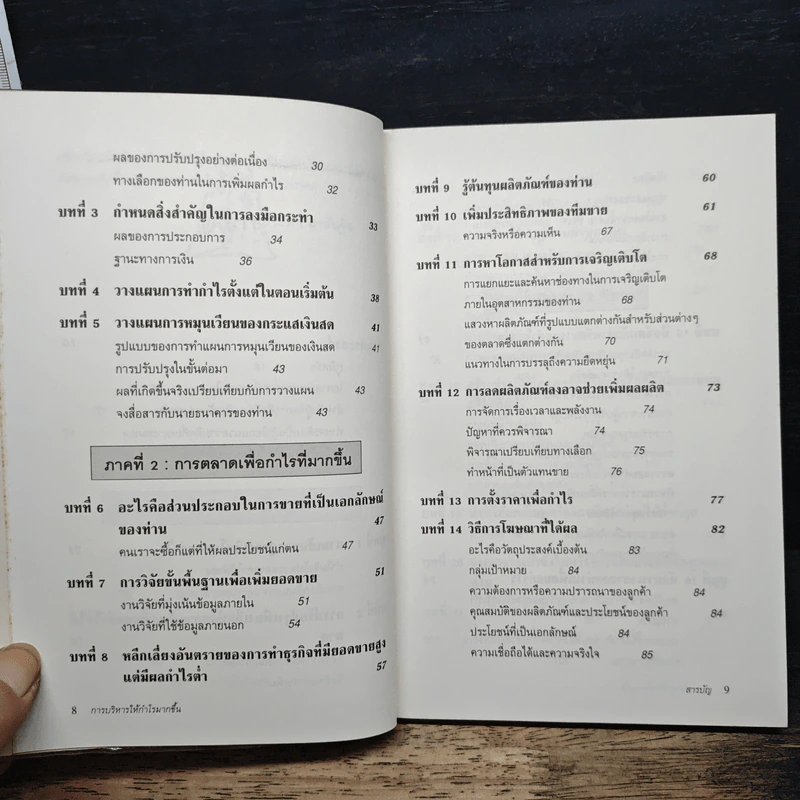 ผลของการปรับปรุงอย่างต่อเนื่อง 30
ทางเลือกของท่านในการเพิ่มผลกำไร 32
บทที่ 3 กำหนดสิ่งสำคัญในการลงมือกระทำ 33
ผลของการประกอบการ 34
ฐานะทางการเงิน 36
บทที่ 4 วางแผนการทำกำไรตั้งแต่ในตอนเริ่มต้น 38
บทที่ 5 วางแผนการหมุนเวียนของกระแสเงินสด 41
รูปแบบของการทำแผนการหมุนเวียนของเงินสด 41
การปรับปรุงในขั้นต่อมา 43
ผลที่เกิดขึ้นจริงเปรียบเทียบกับการวางแผน 43
จงสื่อสารกับนายธนาคารของท่าน 43
ภาคที่ 2 : การตลาดเพื่อกำไรที่มากขึ้น
บทที่ 6 อะไรคือส่วนประกอบในการขายที่เป็นเอกลักษณ์
ของท่าน 47
คนเราจะซื้อก็แต่ที่ให้ผลประโยชน์แก่ตน 47
บทที่ 7 การวิจัยขั้นพื้นฐานเพื่อเพิ่มยอดขาย 51
งานวิจัยที่มุ่งเน้นข้อมูลภายใน 51
งานวิจัยที่ใช้ข้อมูลภายนอก 54
บทที่ 8 หลีกเลี่ยงอันตรายของการทำธุรกิจที่มียอดขายสูง
แต่มีผลกำไรต่ำ 57
8 การบริหารให้กำไรมากขึ้น
บทที่ 9 รู้ต้นทุนผลิตภัณฑ์ของท่าน 60
บทที่ 10 เพิ่มประสิทธิภาพของทีมขาย 61
ความจริงหรือความเห็น 67
บทที่ 11 การหาโอกาสสำหรับการเจริญเติบโต 68
การแยกแยะและค้นหาช่องทางในการเจริญเติบโต
ภายในอุตสาหกรรมของท่าน 68
แสวงหาผลิตภัณฑ์ที่รูปแบบแตกต่างกันสำหรับส่วนต่างๆ
ของตลาดซึ่งแตกต่างกัน 70
แนวทางในการบรรลุถึงความยืดหยุ่น 71
บทที่ 12 การลดผลิตภัณฑ์ลงอาจช่วยเพิ่มผลผลิต 73
การจัดการเรื่องเวลาและพลังงาน 74
ปัญหาที่ควรพิจารณา 74
พิจารณาเปรียบเทียบทางเลือก 75
ทำหน้าที่เป็นตัวแทนขาย 76
บทที่ 13 การตั้งราคาเพื่อกำไร 77
บทที่ 14 วิธีการโฆษณาที่ได้ผล 82
อะไรคือวัตถุประสงค์เบื้องต้น 83
กลุ่มเป้าหมาย 84
ความต้องการหรือความปรารถนาของลูกค้า 84
คุณสมบัติของผลิตภัณฑ์และประโยชน์ของลูกค้า 84
ประโยชน์ที่เป็นเอกลักษณ์ 84
ความเชื่อถือได้และความจริงใจ 85
สารบัญ 9